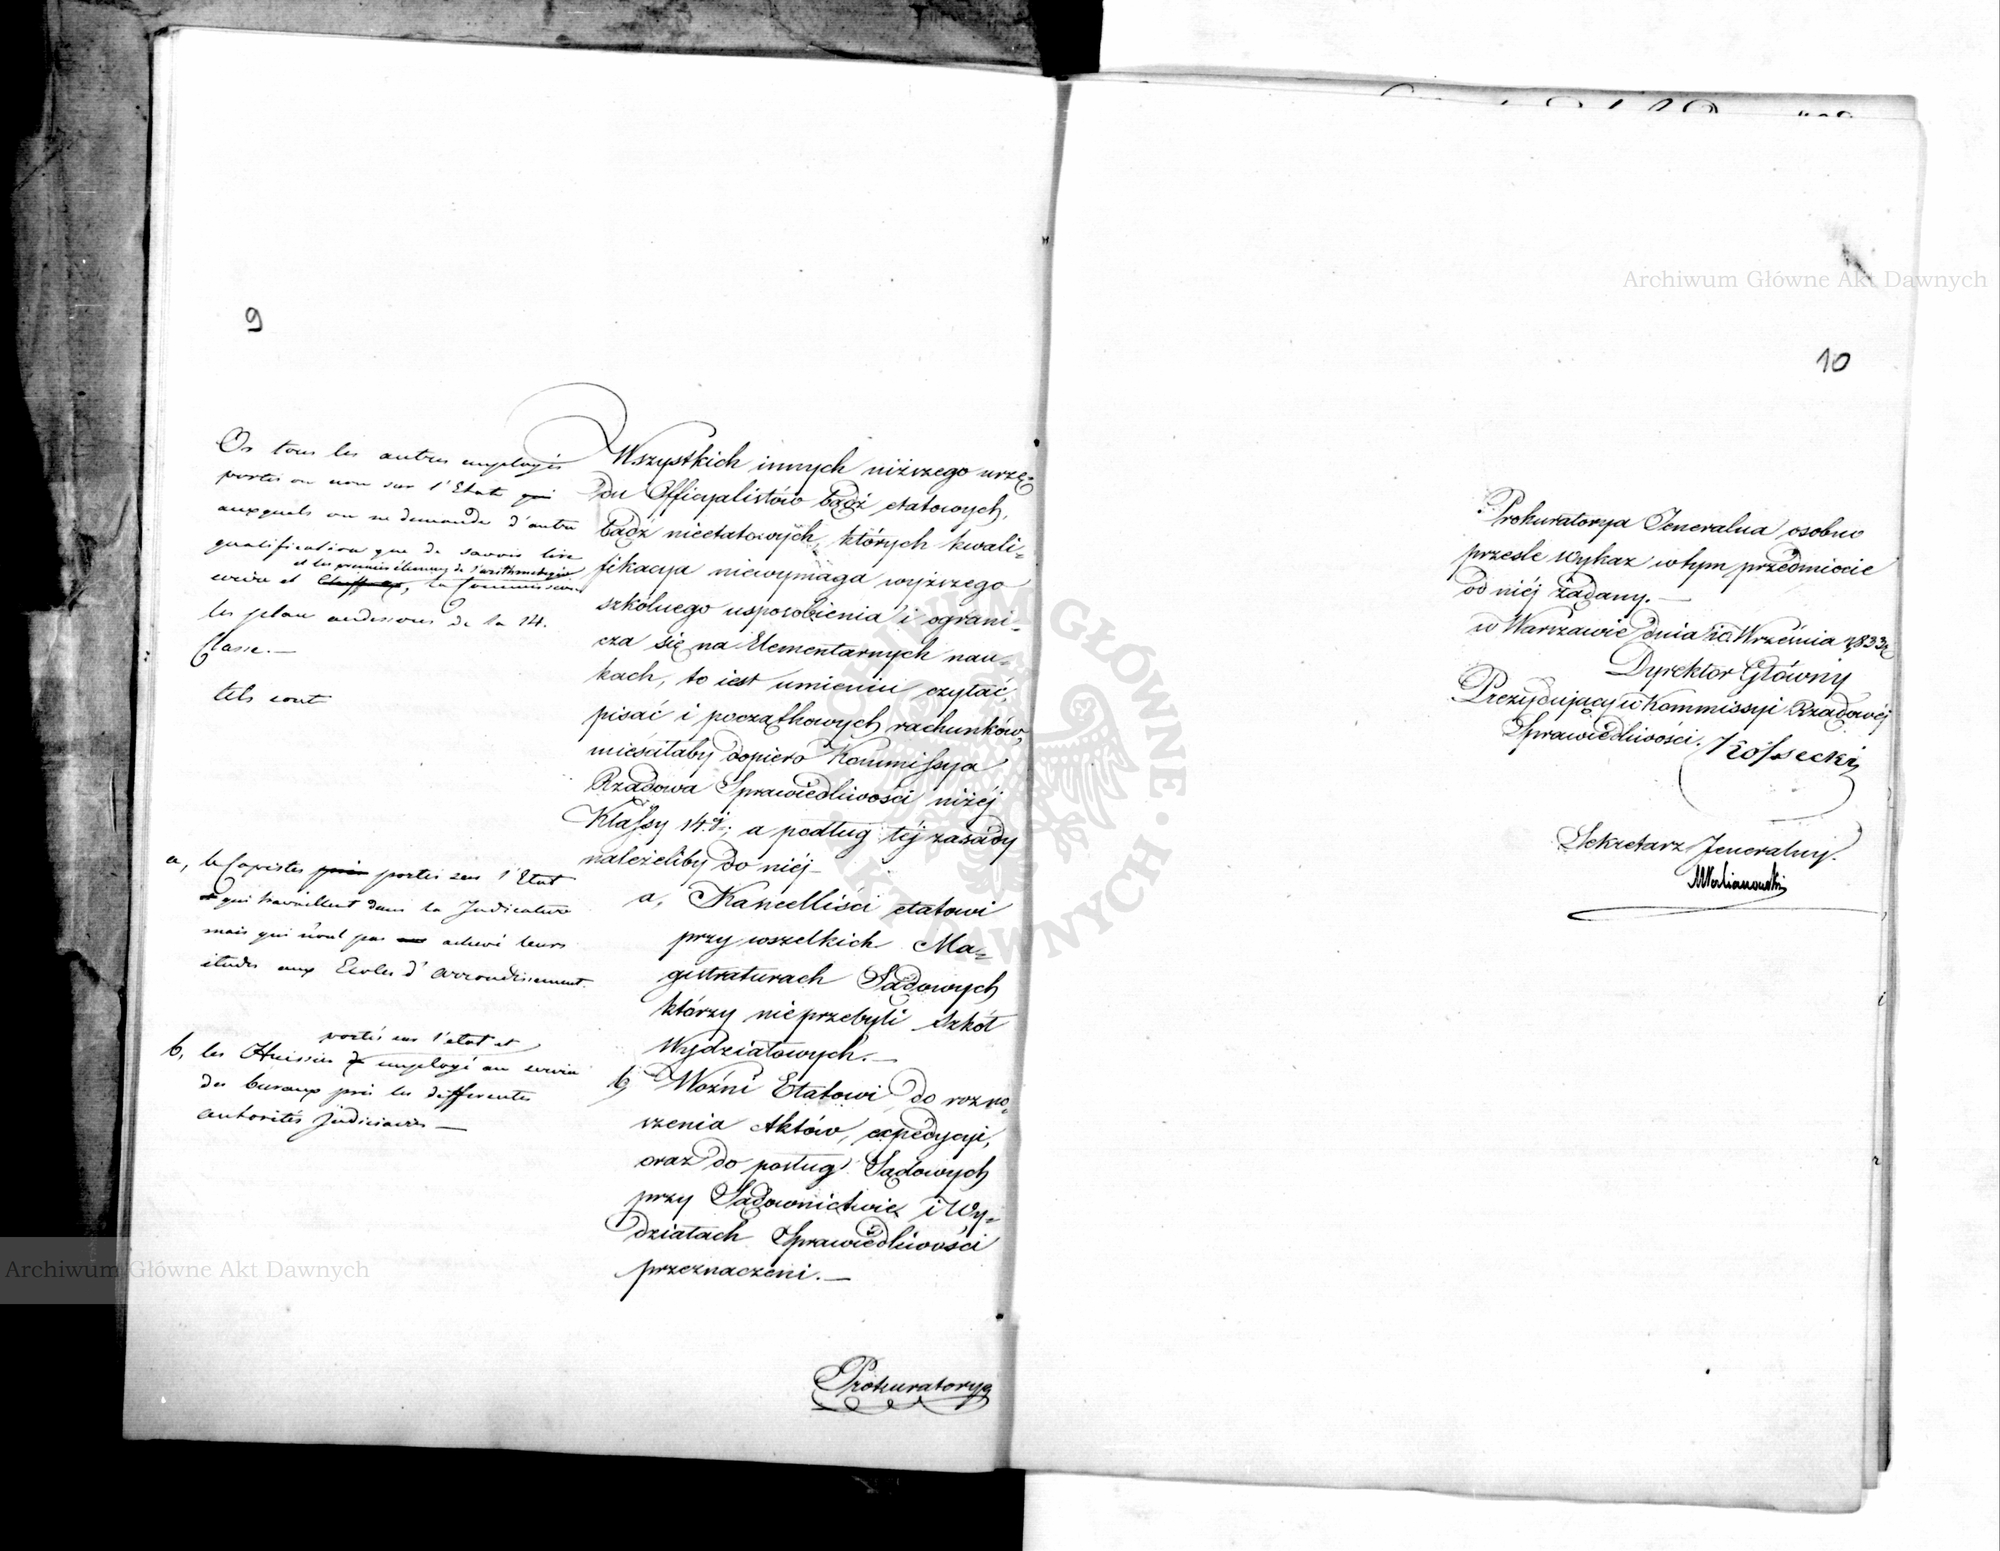 9
Or tous les autres employés
portés ou non sur l'Etat qui
auxquels on ne demande d'autre
qualification que de savoir lire
et les premiers élémens de l'arithmétique
écrire et chiffrer, la Commission
les place au dessous de la 14.
Classe. —
tels sont
a, les Copistes portés sur l'Etat
qui travaillent dans la Judicature
mais qui n'ont pas achevé leurs
études aux Ecoles d'arrondissement.
portés sur l'état et
b, les Huissiers employés au service
des bureaux près les differentes
autorités judiciaires —
Wszystkich innych niższego urzę-
du Officyalistów bądź etatowych,
bądź nieetatowych, których kwali-
fikacya niewymaga wyższego
szkolnego usposobienia i ograni-
cza się na Elementarnych nau-
kach, to iest umieniu czytać,
pisać i początkowych rachunków,
mieściłaby dopiero Kommissya
Rządowa Sprawiedliwości niżéj
Klassy 14.éj; a podług téj zasady
należeliby do niéj —
a, Kancelliści etatowi
przy wszelkich Ma-
gistraturach Sądowych
którzy nieprzebyli Szkół
Wydziałowych. —
b, Woźni Etatowi do rozno-
szenia Aktów, expedycyi,
oraz do posług Sądowych
przy Sądownictwie i Wy-
działach Sprawiedliwości
przeznaczeni. —
Prokuratorya
10
Prokuratorya Jeneralna osobno
prześle wykaz w tym przedmiocie
od niéj żądany. —
w Warszawie dnia 10 Września 1833 r.
Dyrektor Główny
Prezydujący w Kommissyi Rządowéj
Sprawiedliwości. Kossecki
Sekretarz Jeneralny.
Archiwum Główne Akt Dawnych
Archiwum Główne Akt Dawnych
ARCHIWUM GŁÓWNE AKT DAWNYCH